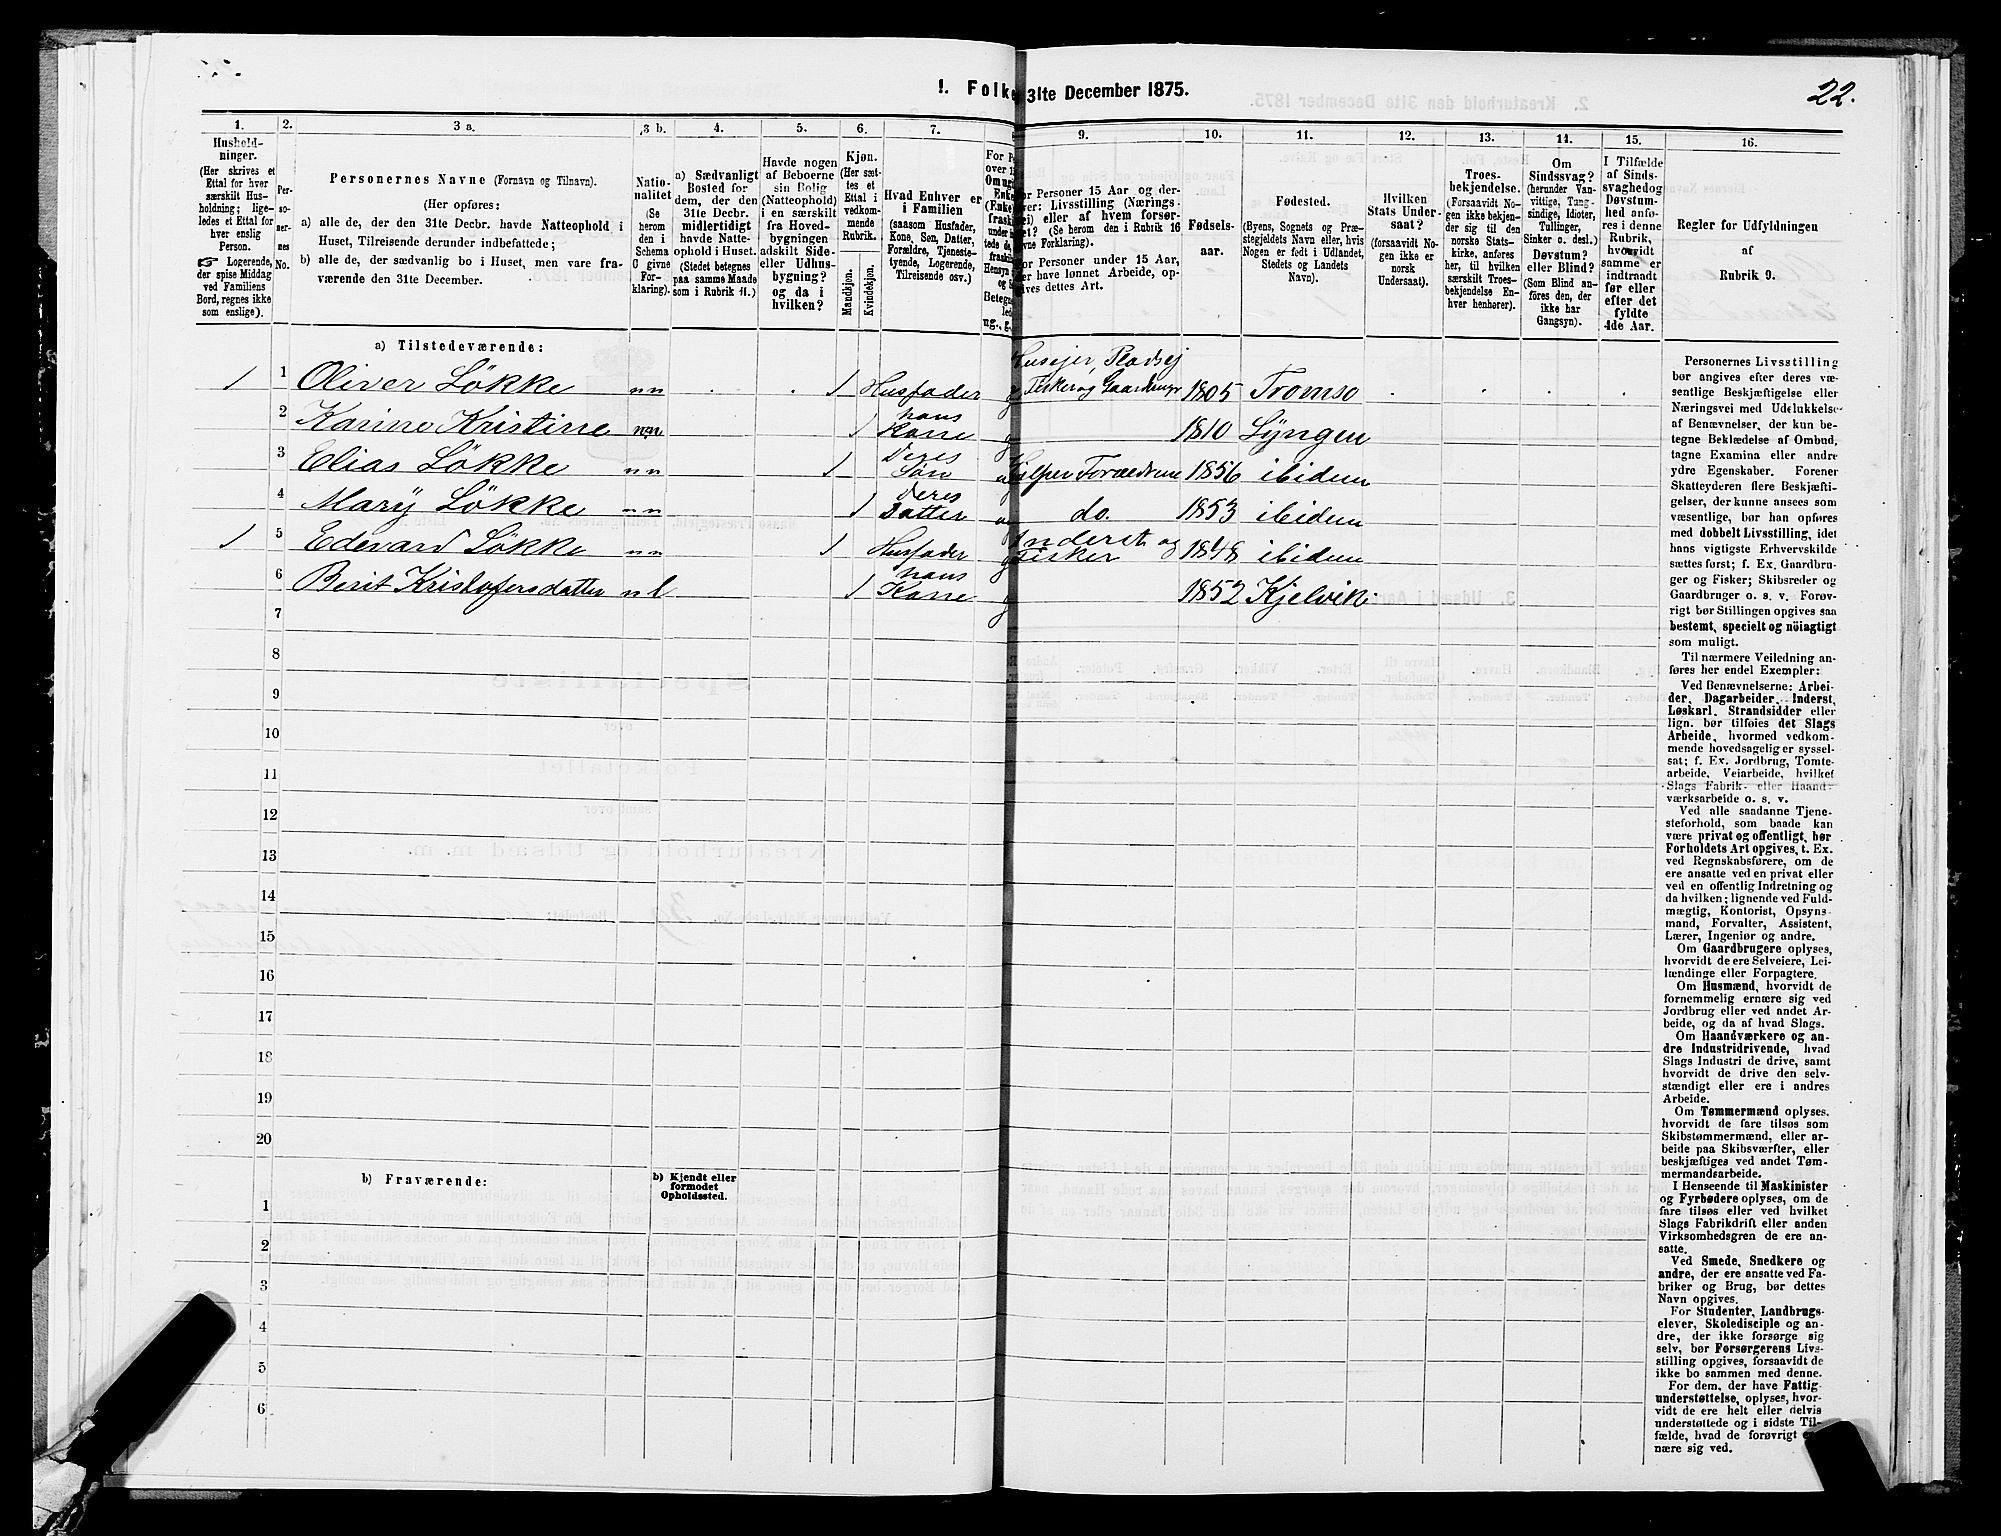 1. Folke 31te December 1875.
22.
1. 2. 3 a. 3 b. 4. 5. 6. 7. 9. 10. 11. 12. 13. 14. 15. 16.
Hushold-
ninger.
(Her skrives et
Ettal for hver
særskilt Hus-
holdning; lige-
ledes et Ettal for
hver enslig
Person.
☞ Logerende,
der spise Middag
ved Familiens
Bord, regnes ikke
som enslige).
Per-
so-
ner-
nes
No.
Personernes Navne (Fornavn og Tilnavn).
(Her opføres:
a) alle de, der den 31te Decbr. havde Natteophold i
Huset, Tilreisende derunder indbefattede;
b) alle de, der sædvanlig bo i Huset, men vare fra-
værende den 31te December.
Natio-
nalitet
(Se
herom
den i
Schema
G givne
For-
klaring).
a) Sædvanligt
Bosted for
dem, der den
31te Decbr.
midlertidigt
havde Natte-
ophold i Huset.
(Stedet betegnes
paa samme Maade
som i Rubrik 11.)
Havde nogen
af Beboerne
sin Bolig
(Natteophold)
i en særskilt
fra Hoved-
bygningen
adskilt Side-
eller Udhus-
bygning?
og da i
hvilken?
Kjøn.
(Her sæt-
tes et
Ettal i
vedkom-
mende
Rubrik.
Mandkjøn.
Kvindekjøn.
Hvad Enhver er
i Familien
(saasom Husfader,
Kone, Søn, Datter,
Forældre, Tjeneste-
tyende, Logerende,
Tilreisende osv.)
For Personer 15 Aar og der-
over: Livsstilling (Nærings-
vei) eller af hvem forsør-
get? (Se herom den i Rubrik 16
givne Forklaring).
For Personer under 15 Aar,
der have lønnet Arbeide, op-
gives dettes Art.
Fødsels-
aar.
Fødested.
(Byens, Sognets og Præ-
stegjeldets Navn eller, hvis
Nogen er født i Udlandet,
Stedets og Landets
Navn).
Hvilken
Stats Under-
saat?
(forsaavidt No-
gen ikke er
norsk
Undersaat).
Troes-
bekjendelse.
(Forsaavidt No-
gen ikke bekjen-
der sig til den
norske Stats-
kirke, anføres
her, til hvilken
særskilt Troes-
bekjendelse En-
hver henhører).
Om
Sindssvag?
(herunder Van-
vittige, Tung-
sindige, Idioter,
Tullinger,
Sinker o. desl.)
Døvstum?
eller Blind?
(Som Blind an-
føres den, der
ikke har
Gangsyn).
I Tilfælde
af Sinds-
svaghed og
Døvstum-
hed anfø-
res i denne
Rubrik,
hvorvidt
samme er
indtraadt
før eller
efter det
fyldte
4de Aar.
Regler for Udfyldningen
af
Rubrik 9.
a) Tilstedeværende:
Husejer, Pladsej
1 1 Oliver Løkke n n 1 Husfader g Fisker og Gaardbrugr 1805 Tromsø
2 Karine Kristine n n 1 hans Kone g 1810 Lyngen
3 Elias Løkke n n 1 Deres Søn ug Hjelper Forældrene 1856 ibidem
4 Mary Løkke n n 1 Deres Datter ug do. 1853 ibidem
1 5 Edevard Løkke n n 1 Husfader g Inderst og Fisker 1848 ibidem
6 Berit Kristofersdatter n l 1 hans Kone g 1852 Kjelvik
7
8
9
10
11
12
13
14
15
16
17
18
19
20
b) Fraværende:
b) Kjendt eller
formodet
Opholdssted.
1
2
3
4
5
6
Personernes Livsstilling
bør angives efter deres væ-
sentlige Beskjæftigelse eller
Næringsvei med Udelukkelse
af Benævnelser, der kun be-
tegne Beklædelse af Ombud,
tagne Examina eller andre
ydre Egenskaber. Forener
Skatteyderen flere Beskjæfti-
gelser, der kunne ansees som
væsentlige, bør han opføres
med dobbelt Livsstilling, idet
hans vigtigste Erhvervskilde
sættes først; f. Ex. Gaardbru-
ger og Fisker; Skibsreder og
Gaardbruger o. s. v. Forøv-
rigt bør Stillingen opgives saa
bestemt, specielt og nöiagtigt
som muligt.
Til nærmere Veiledning an-
føres her endel Exempler:
Ved Benævnelserne: Arbei-
der, Dagarbeider, Inderst,
Løskarl, Strandsidder eller
lign. bør tilføies det Slags
Arbeide, hvormed vedkom-
mende hovedsagelig er syssel-
sat; f. Ex. Jordbrug, Tomte-
arbeide, Veiarbeide, hvilket
Slags Fabrik- eller Haand-
værksarbeide o. s. v.
Ved alle saadanne Tjene-
steforhold, som baade kan
være privat og offentligt, bør
Forholdets Art opgives, t. Ex.
ved Regnskabsførere, om de
ere ansatte ved en privat eller
ved en offentlig Indretning og
da hvilken; lignende ved Fuld-
mægtig, Kontorist, Opsyns-
mand, Forvalter, Assistent,
Lærer, Ingeniør og andre.
Om Gaardbrugere oplyses,
hvorvidt de ere Selveiere, Lei-
lændinge eller Forpagtere.
Om Husmænd, hvorvidt de
fornemmelig ernære sig ved
Jordbrug eller ved andet Ar-
beide, og da af hvad Slags.
Om Haandværkere og an-
dre Industridrivende, hvad
Slags Industri de drive, samt
hvorvidt de drive den selv-
stændigt eller ere i andres
Arbeide.
Om Tømmermænd oplyses,
hvorvidt de fare tilsøs som
Skibstømmermænd, eller ar-
beide paa Skibsværfter, eller
beskjæftiges ved andet Tøm-
mermandsarbeide.
I Henseende til Maskinister
og Fyrbødere oplyses, om de
fare tilsøs eller ved hvilket
Slags Fabrikdrift eller anden
Virksomhedsgren de ere an-
satte.
Ved Smede, Snedkere og
andre, der ere ansatte ved Fa-
briker og Brug, bør dettes
Navn opgives.
For Studenter, Landbrugs-
elever, Skoledisciple og an-
dre, der ikke forsørge sig
selv, bør Forsørgerens Livs-
stilling opgives, forsaavidt de
ikke bo sammen med denne.
For dem, der have Fattig-
understøttelse, oplyses, hvor-
vidt de ere helt eller delvis
understøttede og i sidste Til-
fælde, hvad de forøvrigt er-
nære sig ved.